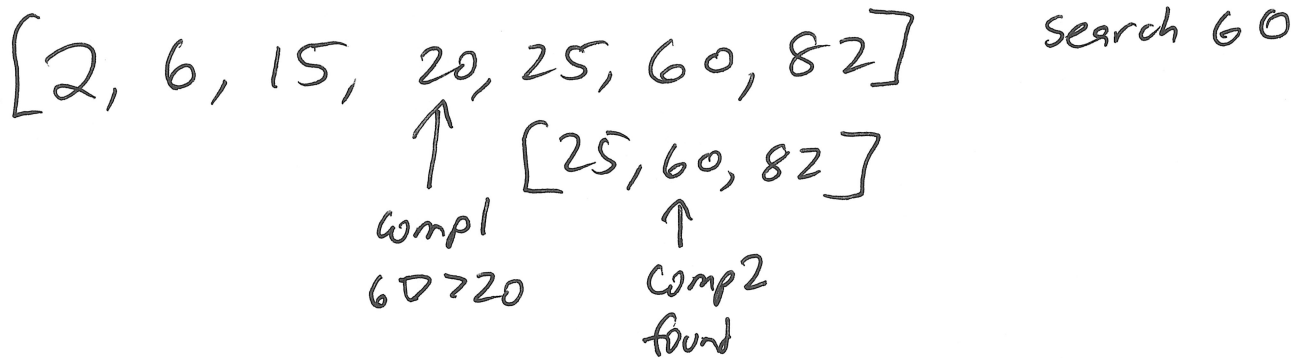 [2, 6, 15, 20, 25, 60, 82]
search 60
[25, 60, 82]
comp1
60>20
comp2
found